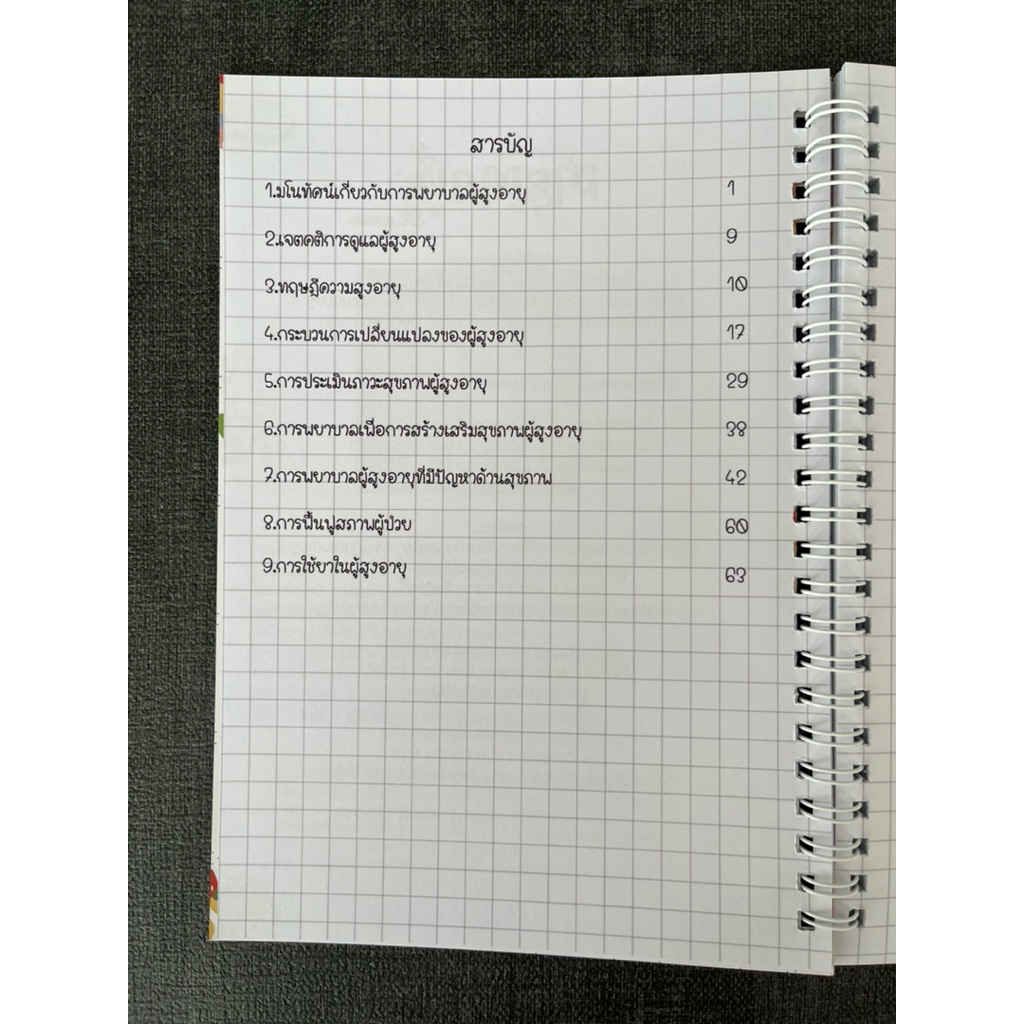 สารบัญ
1.มโนทัศน์เกี่ยวกับการพยาบาลผู้สูงอายุ 1
2.เจตคติการดูแลผู้สูงอายุ 9
3.ทฤษฎีความสูงอายุ 10
4.กระบวนการเปลี่ยนแปลงของผู้สูงอายุ 17
5.การประเมินภาวะสุขภาพผู้สูงอายุ 29
6.การพยาบาลเพื่อการสร้างเสริมสุขภาพผู้สูงอายุ 38
7.การพยาบาลผู้สูงอายุที่มีปัญหาด้านสุขภาพ 42
8.การฟื้นฟูสภาพผู้ป่วย 60
9.การใช้ยาในผู้สูงอายุ 63